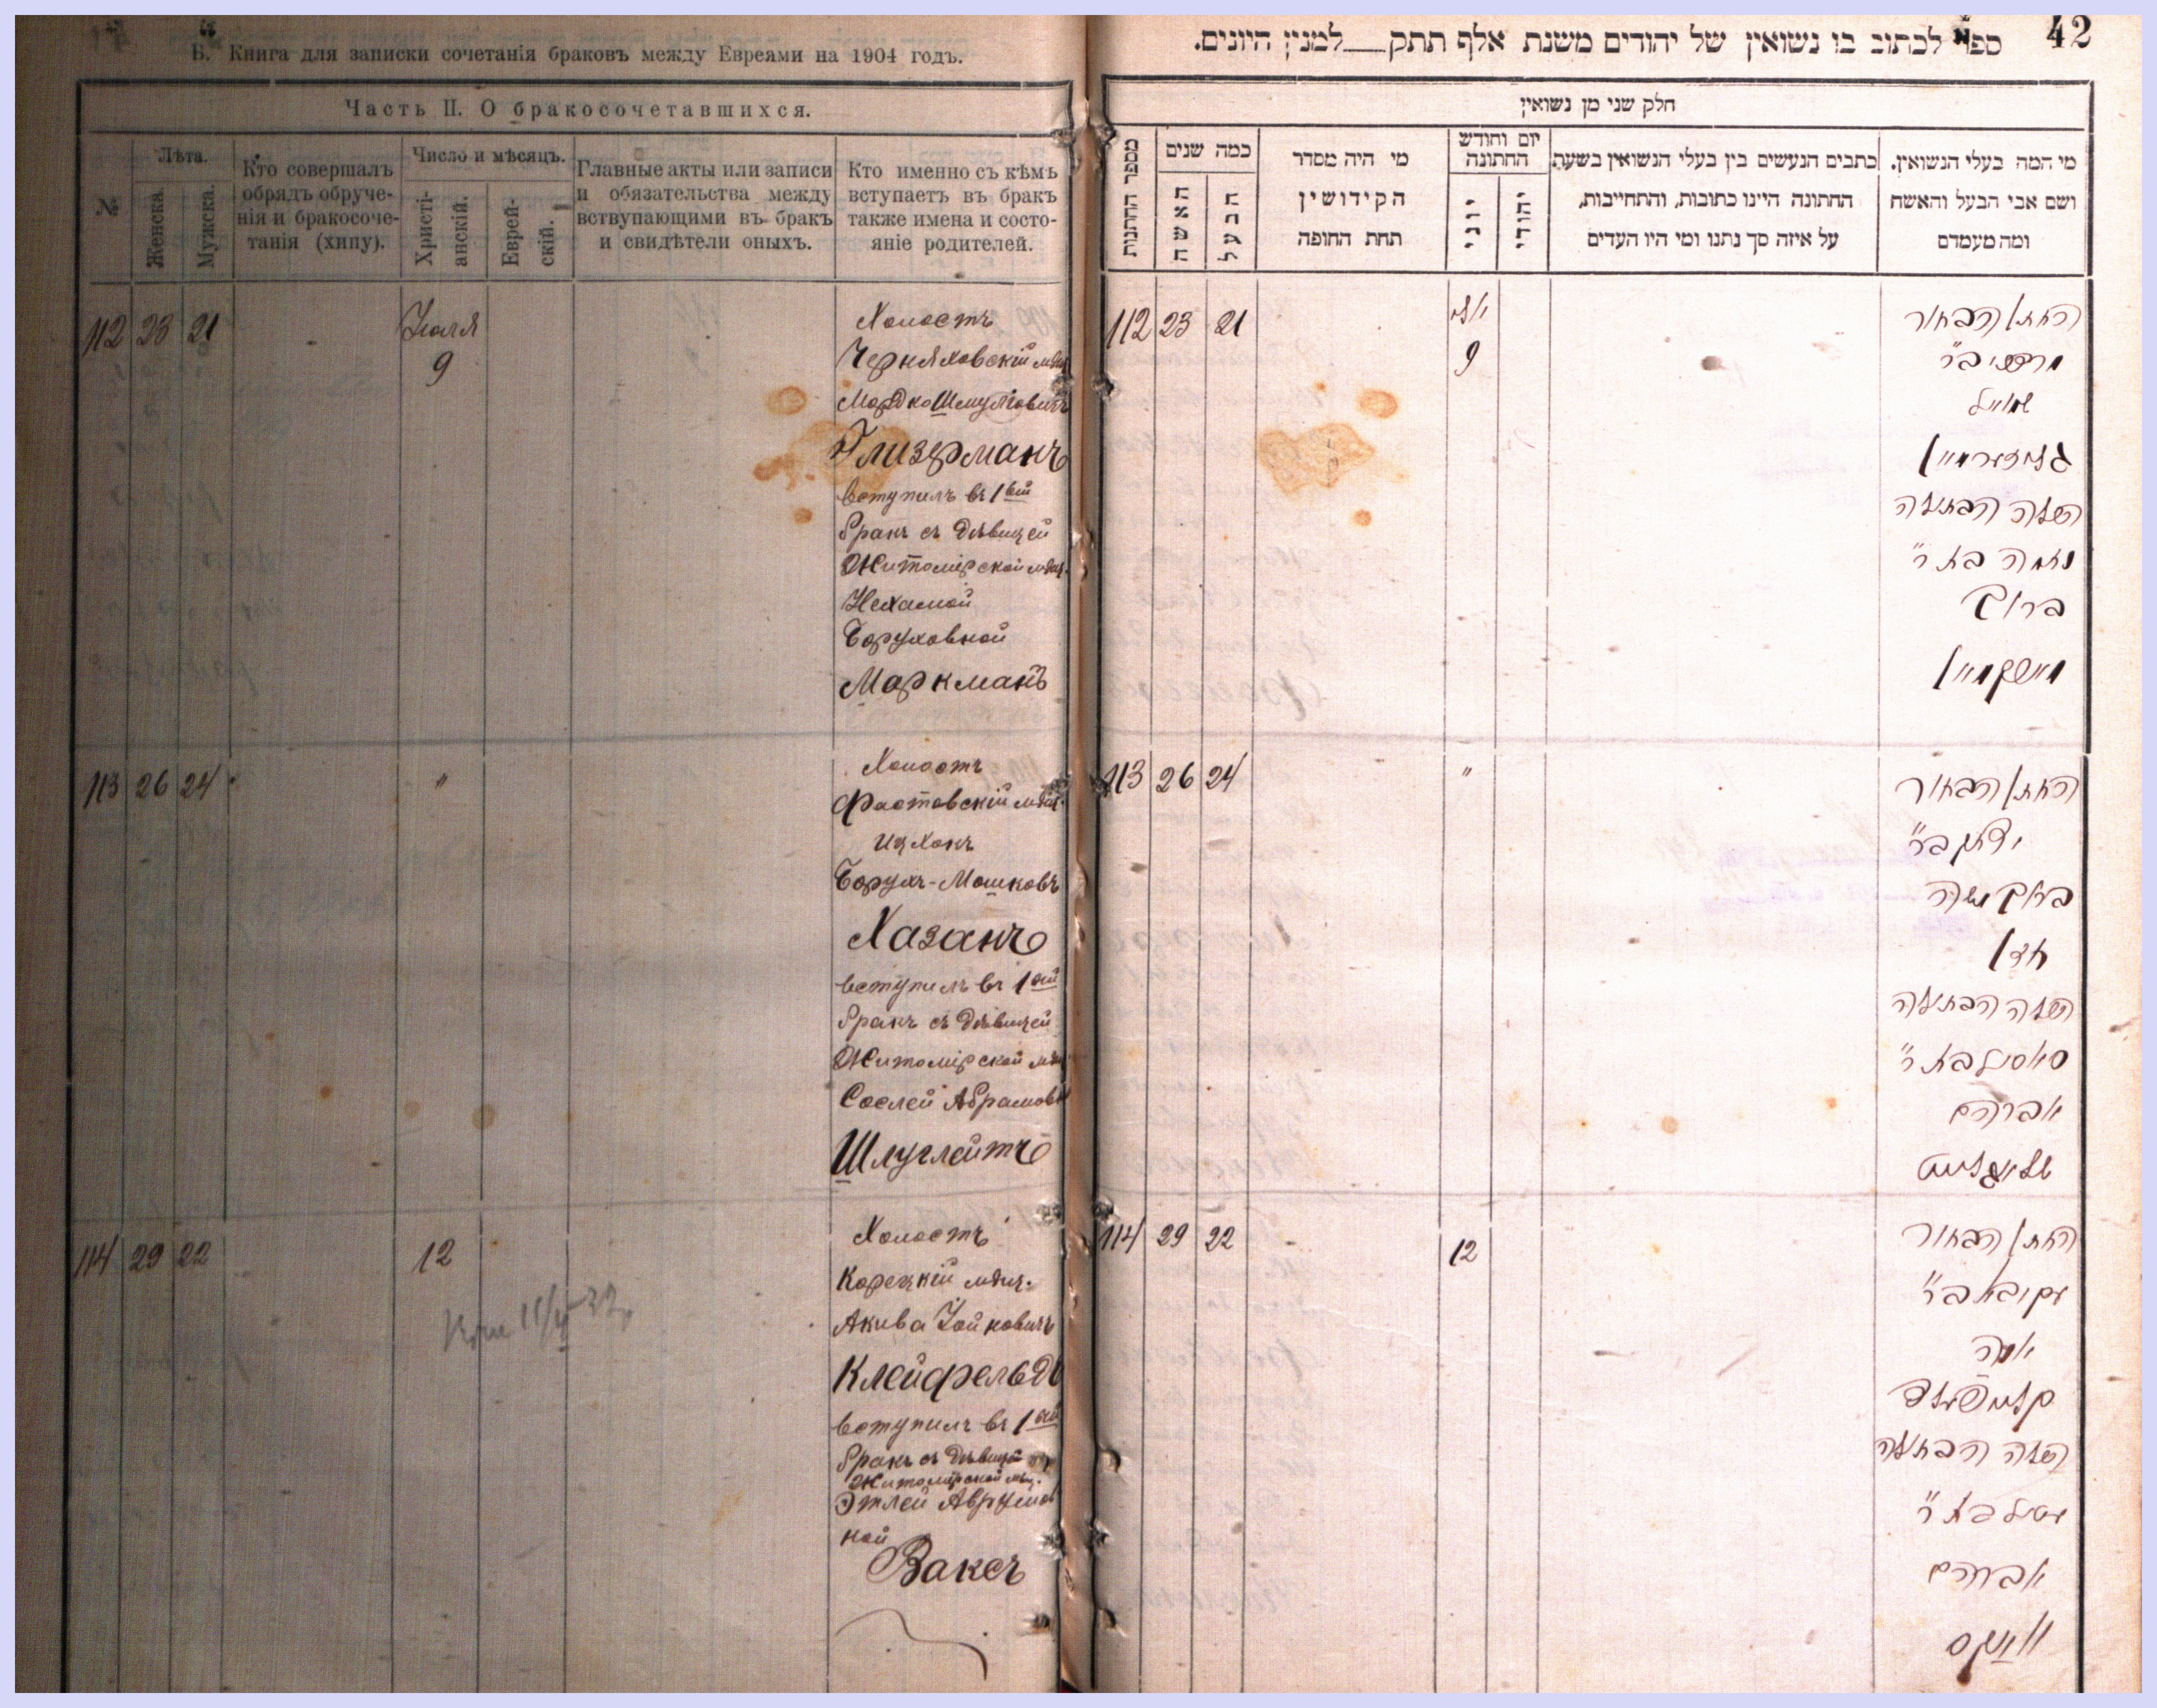 Б. Книга для записки сочетанія браковъ между Евреями на 1904 годъ.
Часть II. О бракосочетавшихся.
№
Лѣта.
Женска.
Мужска.
Кто совершалъ
обрядъ обруче-
нія и бракосоче-
танія (хипу).
Число и мѣсяцъ.
Христі-
анскій.
Еврей-
скій.
Главные акты или записи
и обязательства между
вствупающими въ бракъ
и свидѣтели оныхъ.
Кто именно съ кѣмъ
вступаетъ въ бракъ
также имена и состо-
яніе родителей.
112 23 21
Іюля
9
Холостъ
Черняховскій мѣщ
Мордко Шмулёвичъ
Глизерманъ
вступилъ въ 1ый
бракъ съ дѣвицей
Житомірской мѣщ.
Нехамой
Боруховной
Маркманъ
113 26 24 "
Холостъ
Фастовскій мѣщ.
Ицхокъ
Борухъ-Мошковъ
Хазанъ
вступилъ въ 1ый
бракъ съ дѣвицей
Житомірской мѣщ
Сослей Абрамовн
Шлуглейтъ
114 29 22 12
Холостъ
Корецкій мѣщ.
Акива Іойновичъ
Клейфельдъ
вступилъ въ 1ый
бракъ съ дѣвицей
Житомірской мѣщ.
Этлей Аврумов
ной
Ваксъ
42
ספר לכתוב בו נשואין של יהודים משנת אלף תתק — למנין היונים.
חלק שני מן נשואין
מספר החתנות
כמה שנים
האשה
הבעל
מי היה מסדר
הקידושין
תחת החופה
יום וחודש
החתונה
יוני
יהודי
כתבים הנעשים בין בעלי הנשואין בשעת
החתונה היינו כתובות, והתחייבות,
על איזה סך נתנו ומי היו העדים
מי המה בעלי הנשואין.
ושם אבי הבעל והאשה
ומה מעמדם
112 23 21
יולי
9
החתן הבחור
מרדכי ב״ר
שמואל
גליזערמאן
הכלה הבתולה
נחמה בת ר״
ברוך
מארקמאן
113 26 24 "
החתן הבחור
יצחק ב״ר
ברוך משה
חזן
הכלה הבתולה
סאסיל בת ר״
אברהם
שלוגלייט
114 29 22 12
החתן הבחור
עקיבא ב״ר
יונה
קלייפעלד
הכלה הבתולה
עטיל בת ר״
אברהם
וואקס